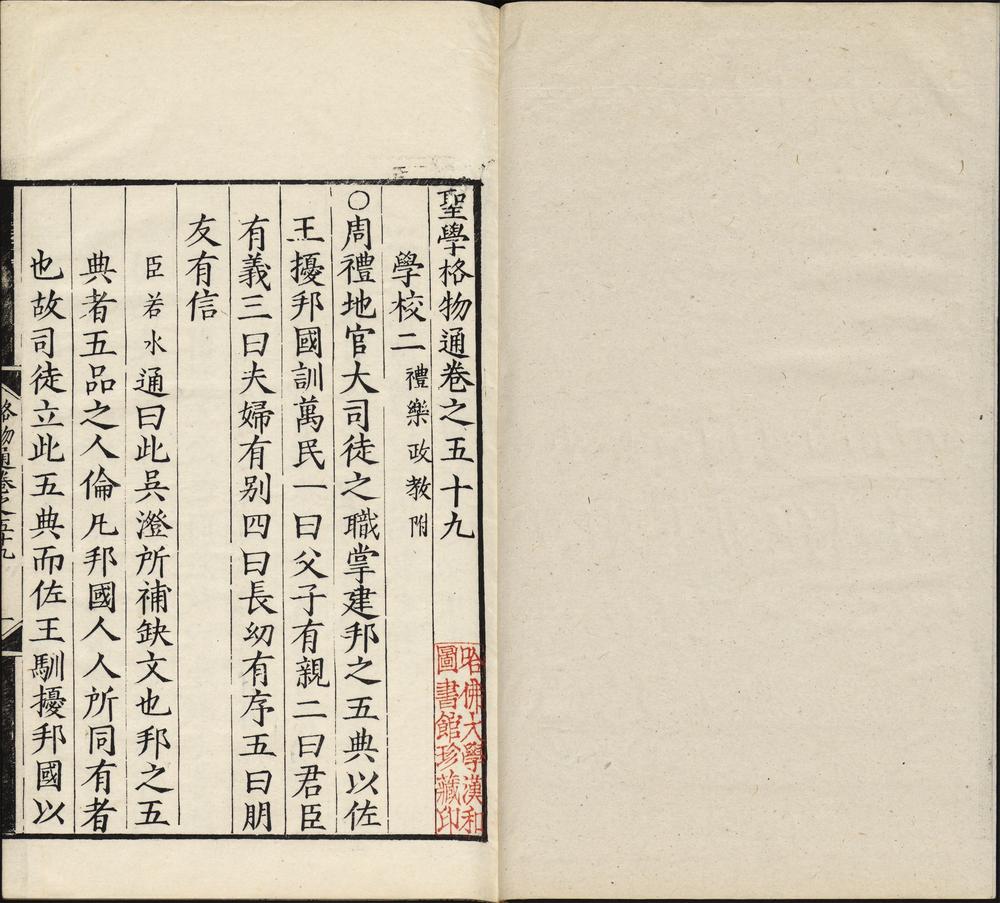 聖學格物通卷之五十九
學校二 禮樂政教附
〇周禮地官大司徒之職掌建邦之五典以佐
王擾邦國訓萬民一曰父子有親二曰君臣
有義三曰夫婦有别四曰長幼有序五曰朋
友有信
臣若水通曰此吳澄所補缺文也邦之五
典者五品之人倫凡邦國人人所同有者
也故司徒立此五典而佐王馴擾邦國以
格物通卷之五十九
一
哈佛大學漢和
圖書館珍藏印